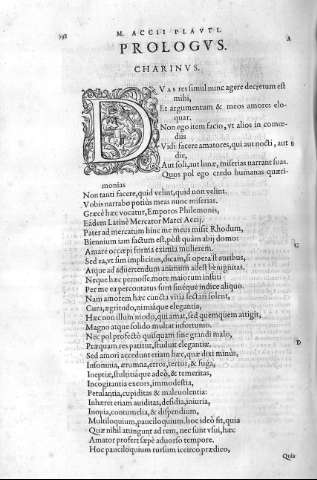 M. ACCII PLAVTI.
A
PROLOGVS.
CHARINVS.
DVAS res simul nunc agere decretum est
mihi,
Et argumentum & meos amores elo-
quar.
Non ego item facio, vt alios in comœ-
dijs
Vidi facere amatores, qui aut nocti, aut
die,
Aut soli, aut lunæ, miserias narrant suas.
Quos pol ego credo humanas quæri-
monias
Non tanti facere, quid velint, quid non velint.
Vobis narrabo potius meas nunc miserias.
Græcè hæc vocatur, Emporos Philemonis,
Eadem Latinè Mercator Marci Accij.
Pater ad mercatum hinc me meus misit Rhodum,
Biennium iam factum est, pòst quàm abij domo:
Amare occœpi forma eximia mulierem.
Sed ea, vt sim implicitus, dicam, si opera est auribus,
Atque ad aduertendum animum adest benignitas.
Neque hæc
Per mea
Nam amorem hæc cuncta vitia sectari solent,
Cura, ægritudo, nimiáque elegantia,
Hæc non illum modò, qui amat, sed quemquem attigit,
Magno atque solido multat infortunio.
Nec pol profectò quisquam sine grandi malo,
Præquam res patitur, studuit elegantiæ.
Sed amori accedunt etiam hæc, quæ dixi minus,
Insomnia, ærumna, error, terror, & fuga,
Ineptia, stultitiáque adeò, & temeritas,
Incogitantia excors, immodestia,
Petulantia, cupiditas & maleuolentia:
Inhæret etiam auiditas, desidia, iniuria,
Inopia, contumelia, & dispendium,
Multiloquium, pauciloquium, hoc ideò fit, quia
Quæ nihil attingunt ad rem, nec sunt vsui, hæc
Amator profert sæpè aduorso tempore.
Hoc pauciloquium rursum iccirco prædico,
Quia
B
C
D